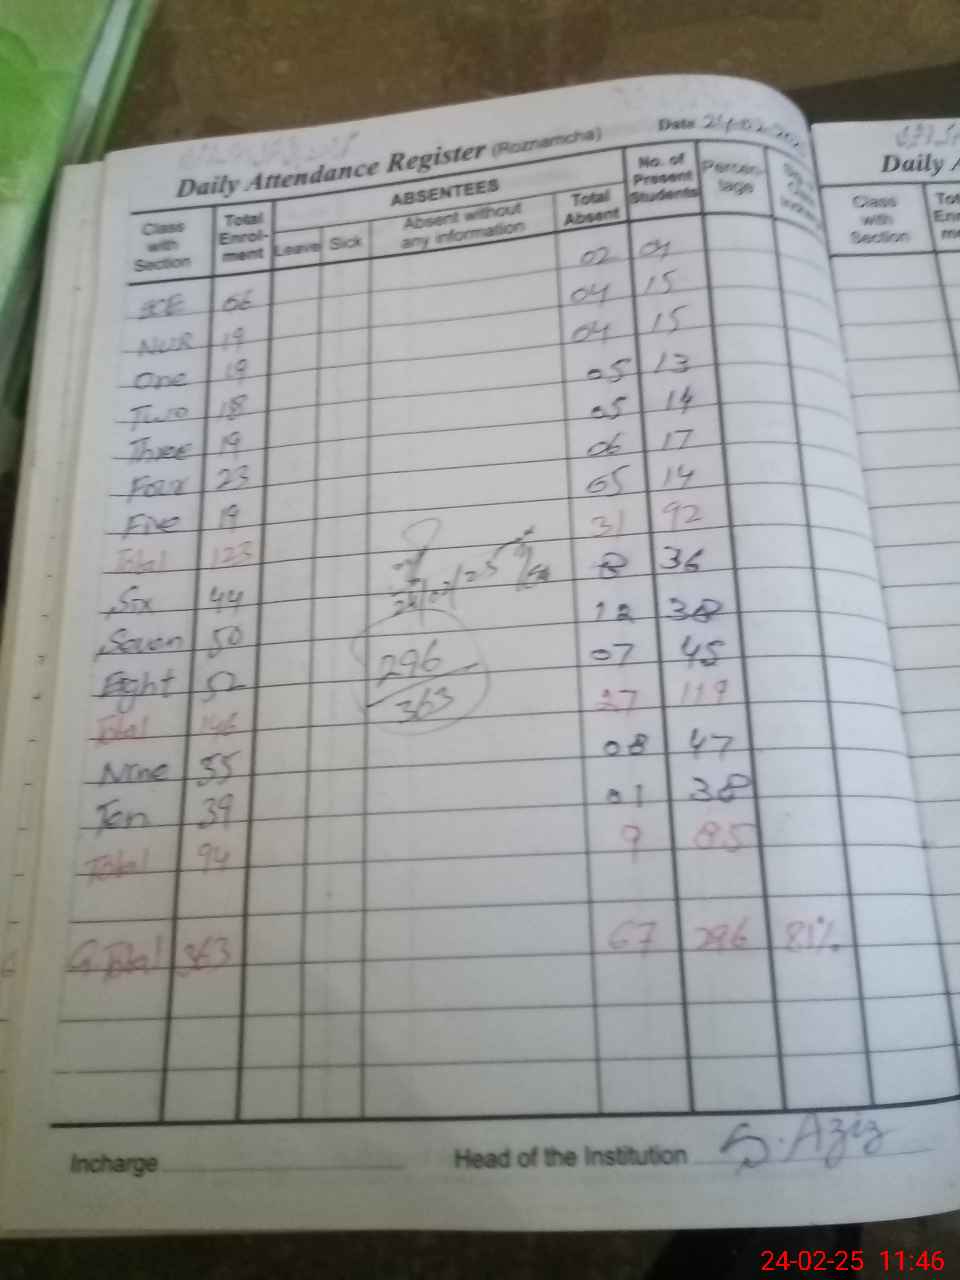 Daily Attendance Register (Roznamcha) Date
Class with Section Total Enrol-ment ABSENTEES Leave Sick Absent without any information Total Absent No. of Present Students Percen-tage
ECE 06 02 04
NUR 19 04 15
One 19 04 15
Two 18 05 13
Three 19 05 14
Four 23 06 17
Five 19 05 14
Total 123 31 92
Six 44 8 36
Seven 50 12 38
Eight 52 07 45
Total 146 27 119
Nine 55 08 47
Ten 39 01 38
Total 94 9 85
296
363
G Total 363 67 296 81%
Incharge Head of the Institution S. Aziz
Daily A
Class with Section
24-02-25 11:46